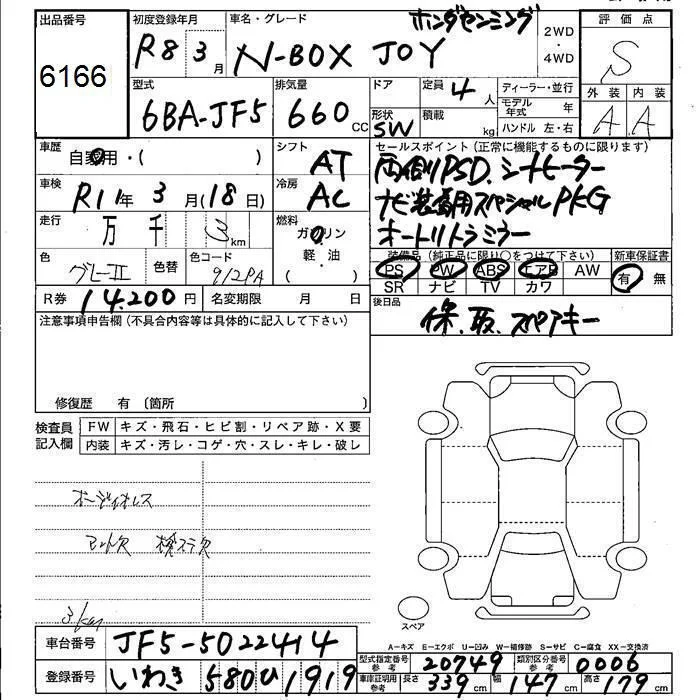 ホンダセンシング
出品番号
6166
初度登録年月
R8 3月
車名・グレード
N-BOX JOY
2WD
・
4WD
評価点
S
外装 内装
A A
型式
6BA-JF5
排気量
660cc
ドア
形状
SW
定員
4人
積載
kg
ディーラー・並行
モデル年式 年
ハンドル 左・右
車歴
自家用・( )
シフト
AT
セールスポイント(正常に機能するものに限ります)
両側PSD.シートヒーター
ナビ装着用スペシャルPKG
オートリトラミラー
車検
R11年3月(18日)
冷房
AC
走行
万 千 3km
燃料
ガソリン
軽・油
( )
色
グレーII
色替
色コード
912PA
装備品(純正品に限り○をつけて下さい)
PS PW ABS エアB AW
SR ナビ TV カワ
新車保証書
有 無
R券 14.200円
名変期限 月 日
後日品
保.取.スペアキー
注意事項申告欄(不具合内容等は具体的に記入して下さい)
修復歴 有〔箇所 〕
検査員記入欄
FW キズ・飛石・ヒビ割・リペア跡・X要
内装 キズ・汚レ・コゲ・穴・スレ・キレ・破レ
マット欠
3km
スペア
A-キズ E-エクボ U-凹み W-補修跡 S-サビ C-腐食 XX-交換済
車台番号 JF5-5022414
登録番号 いわき 580 ひ 1919
型式指定番号参考 20749
類別区分番号参考 0006
車庫証明用参考 長さ 339cm 幅 147cm 高さ 179cm